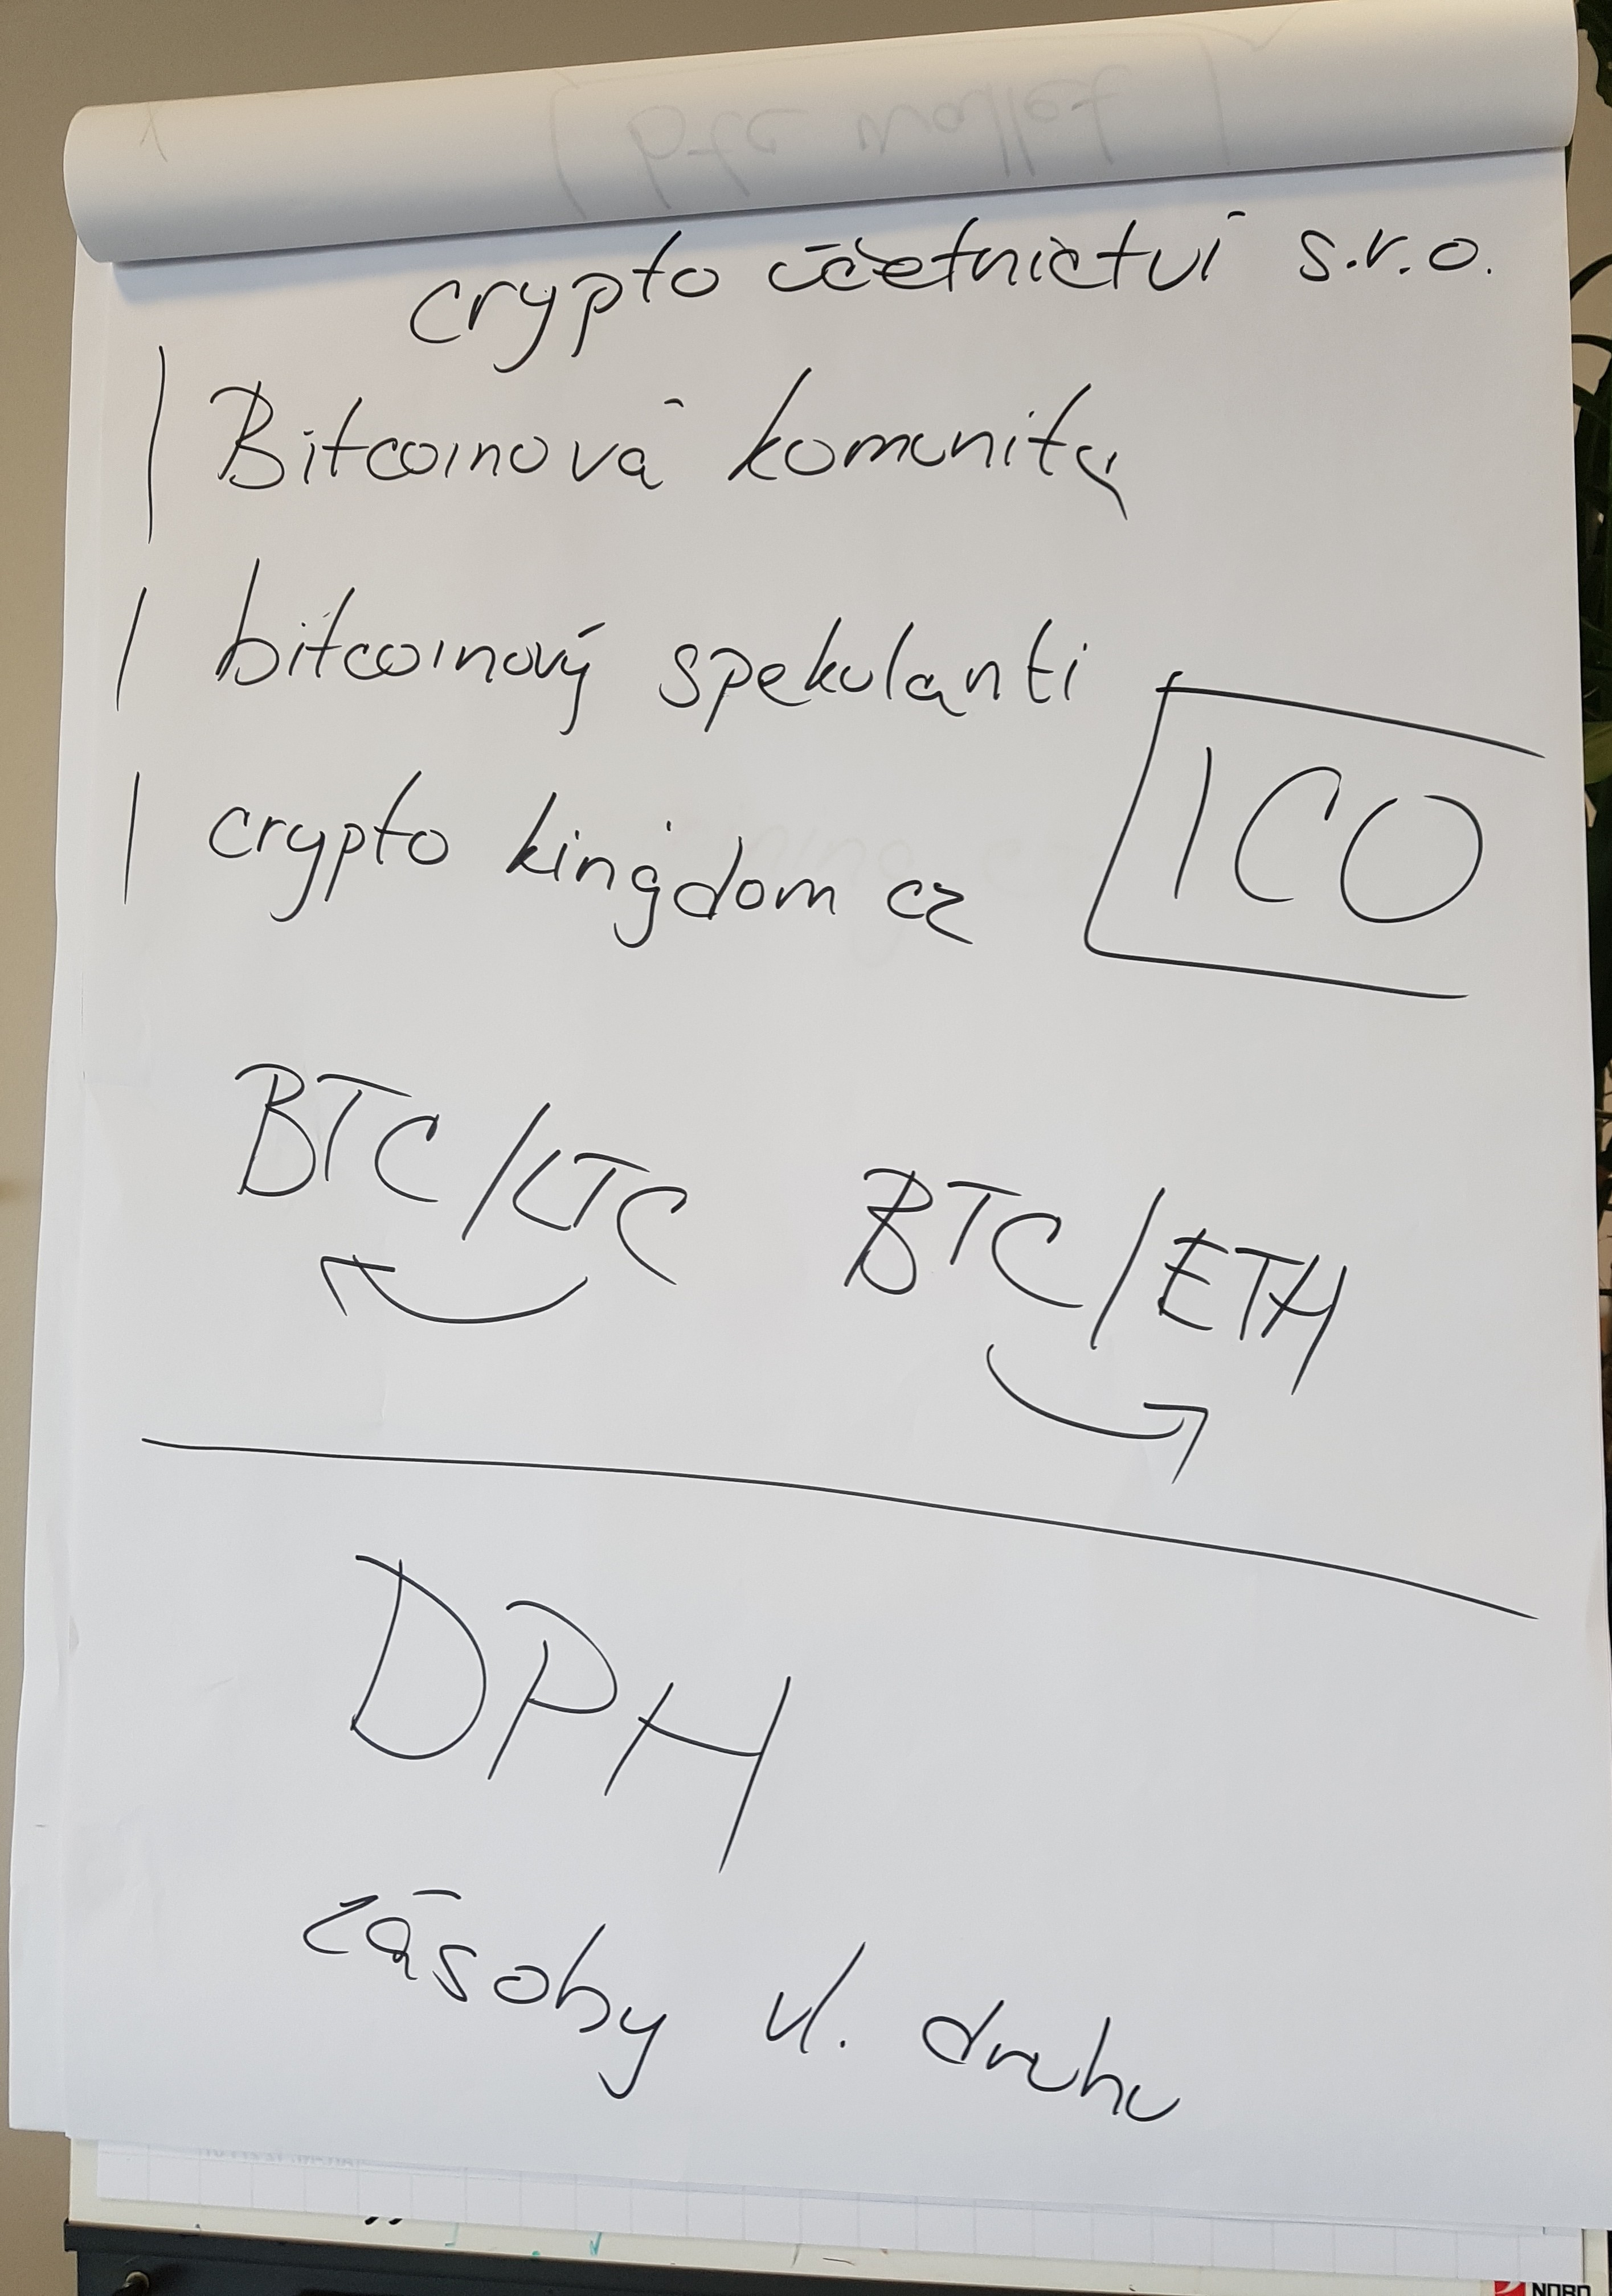 crypto účetnictví s.r.o.
Bitcoinová komunita
bitcoinový spekulanti
crypto kingdom cz
ICO
BTC/LTC
BTC/ETH
DPH
zásoby vl. druhu
NORD